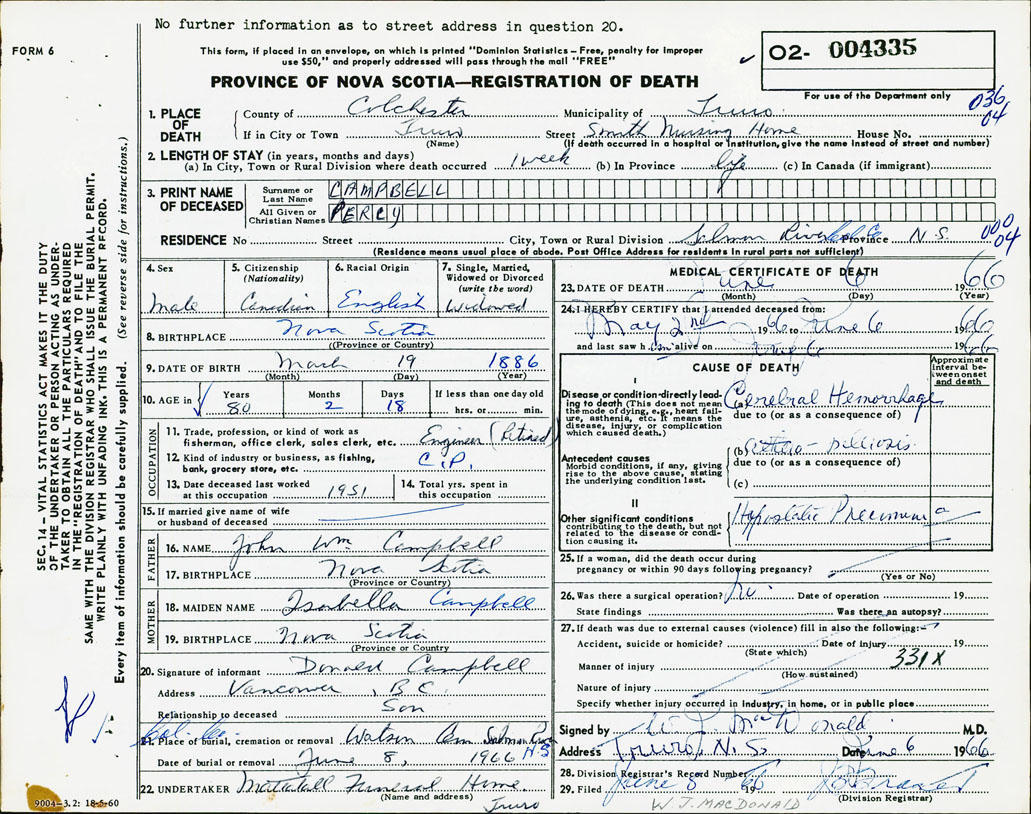 No furtner information as to street address in question 20.
FORM 6
This form, if placed in an envelope, on which is printed "Dominion Statistics—Free, penalty for improper
use $50," and properly addressed will pass through the mail "FREE"
O2- 004335
PROVINCE OF NOVA SCOTIA—REGISTRATION OF DEATH
For use of the Department only
036
04
1. PLACE OF DEATH
County of Colchester Municipality of Truro
If in City or Town Truro Street Smith Nursing Home House No.
(Name) (If death occurred in a hospital or institution, give the name instead of street and number)
2. LENGTH OF STAY (in years, months and days)
(a) In City, Town or Rural Division where death occurred 1 week (b) In Province life (c) In Canada (if immigrant)
3. PRINT NAME OF DECEASED
Surname or Last Name CAMPBELL
All Given or Christian Names PERCY
RESIDENCE No Street City, Town or Rural Division Salmon River Col Co Province N.S. 000
04
(Residence means usual place of abode. Post Office Address for residents in rural parts not sufficient)
4. Sex Male
5. Citizenship (Nationality) Canadian
6. Racial Origin English
7. Single, Married, Widowed or Divorced (write the word) Widowed
8. BIRTHPLACE Nova Scotia
(Province or Country)
9. DATE OF BIRTH March 19 1886
(Month) (Day) (Year)
10. AGE in Years 80 Months 2 Days 18 If less than one day old hrs. or min.
OCCUPATION
11. Trade, profession, or kind of work as
fisherman, office clerk, sales clerk, etc. Engineer (Retired)
12. Kind of industry or business, as fishing,
bank, grocery store, etc. C.P.
13. Date deceased last worked
at this occupation 1951
14. Total yrs. spent in
this occupation
15. If married give name of wife
or husband of deceased
FATHER
16. NAME John Wm Campbell
17. BIRTHPLACE Nova Scotia
(Province or Country)
MOTHER
18. MAIDEN NAME Isabella Campbell
19. BIRTHPLACE Nova Scotia
(Province or Country)
20. Signature of informant Donald Campbell
Address Vancouver, B C.
Relationship to deceased Son
Col. Co.
21. Place of burial, cremation or removal Watson Cem Salmon River N.S.
Date of burial or removal June 8, 1966
22. UNDERTAKER Mattatall Funeral Home.
(Name and address) Truro
9004-3.2: 18-5-60
MEDICAL CERTIFICATE OF DEATH
23. DATE OF DEATH June 6 1966
(Month) (Day) (Year)
24. I HEREBY CERTIFY that I attended deceased from:
May 2nd 1966 to June 6 1966
and last saw him alive on June 6 1966
CAUSE OF DEATH
Approximate interval between onset and death
I
Disease or condition directly leading to death (This does not mean the mode of dying, e.g., heart failure, asthenia, etc. It means the disease, injury, or complication which caused death.)
Cerebral Hemorrhage
due to (or as a consequence of)
Antecedent causes
Morbid conditions, if any, giving rise to the above cause, stating the underlying condition last.
(b)
due to (or as a consequence of)
(c)
II
Other significant conditions
contributing to the death, but not related to the disease or condition causing it.
Hypostatic Pneumonia
25. If a woman, did the death occur during
pregnancy or within 90 days following pregnancy?
(Yes or No)
26. Was there a surgical operation? no Date of operation 19
State findings Was there an autopsy?
27. If death was due to external causes (violence) fill in also the following:
Accident, suicide or homicide? Date of injury 19
(State which)
331X
Manner of injury
(How sustained)
Nature of injury
Specify whether injury occurred in industry, in home, or in public place
Signed by W J MacDonald M.D.
Address Truro, N.S. Date June 6 1966
28. Division Registrar's Record Number
29. Filed June 8 1966
(Division Registrar)
W.J. MACDONALD
SEC. 14— VITAL STATISTICS ACT MAKES IT THE DUTY
OF THE UNDERTAKER OR PERSON ACTING AS UNDER-
TAKER TO OBTAIN ALL THE PARTICULARS REQUIRED
IN THE "REGISTRATION OF DEATH" AND TO FILE THE
SAME WITH THE DIVISION REGISTRAR WHO SHALL ISSUE THE BURIAL PERMIT.
WRITE PLAINLY WITH UNFADING INK. THIS IS A PERMANENT RECORD.
Every item of information should be carefully supplied. (See reverse side for instructions.)